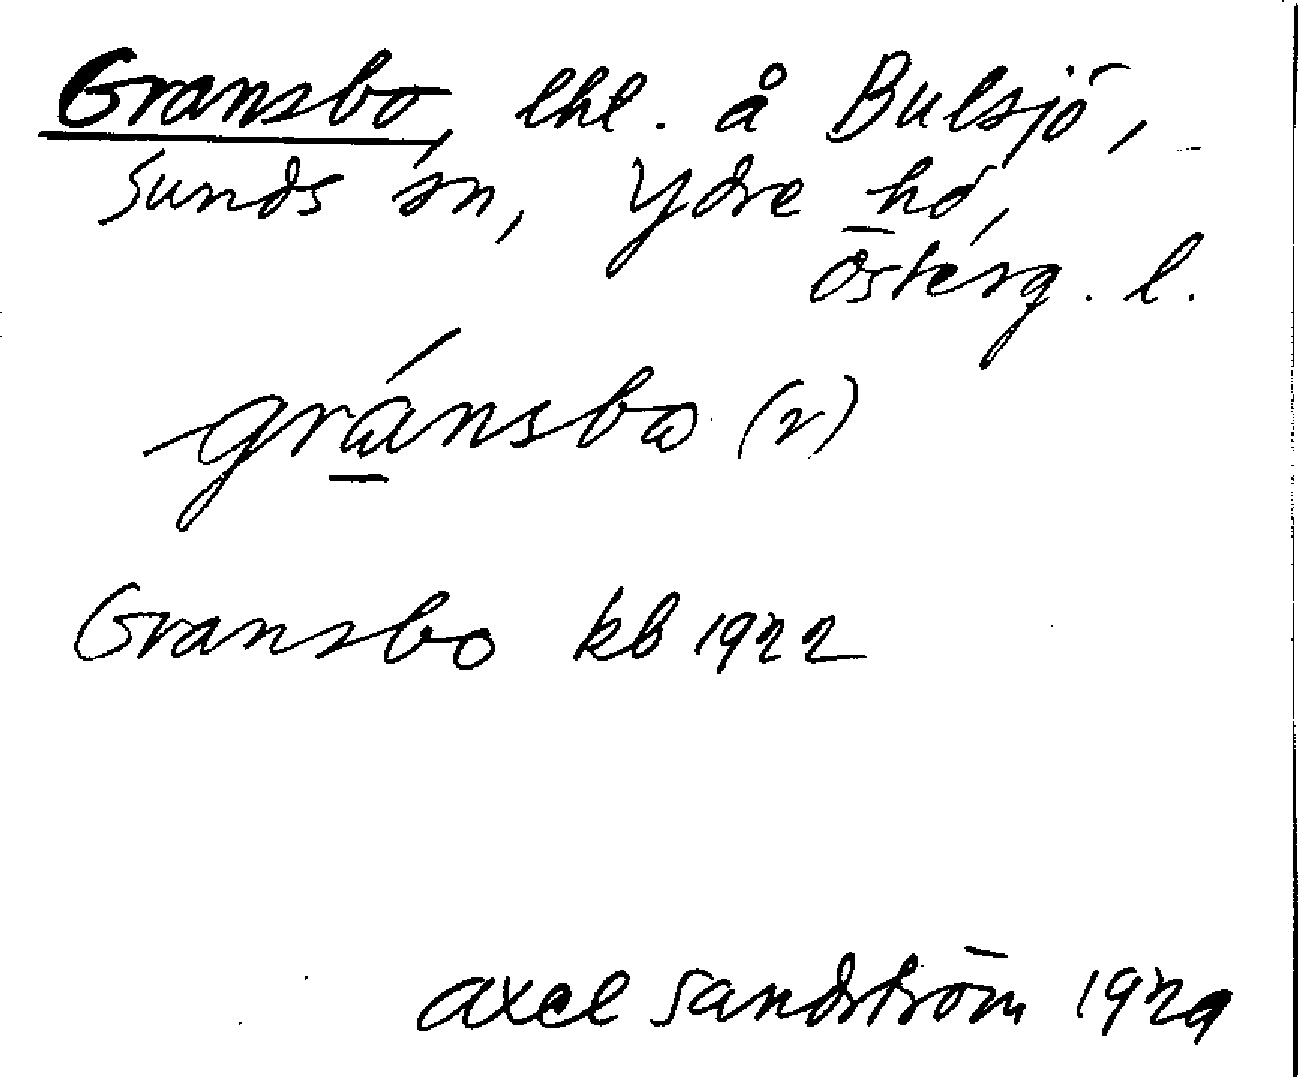 Gransbo, lht. å Bulsjö,
Sunds sn, Ydre hd,
Österg. l.
gránsbo (2)
Gransbo kb 1922
Axel Sandström 1929